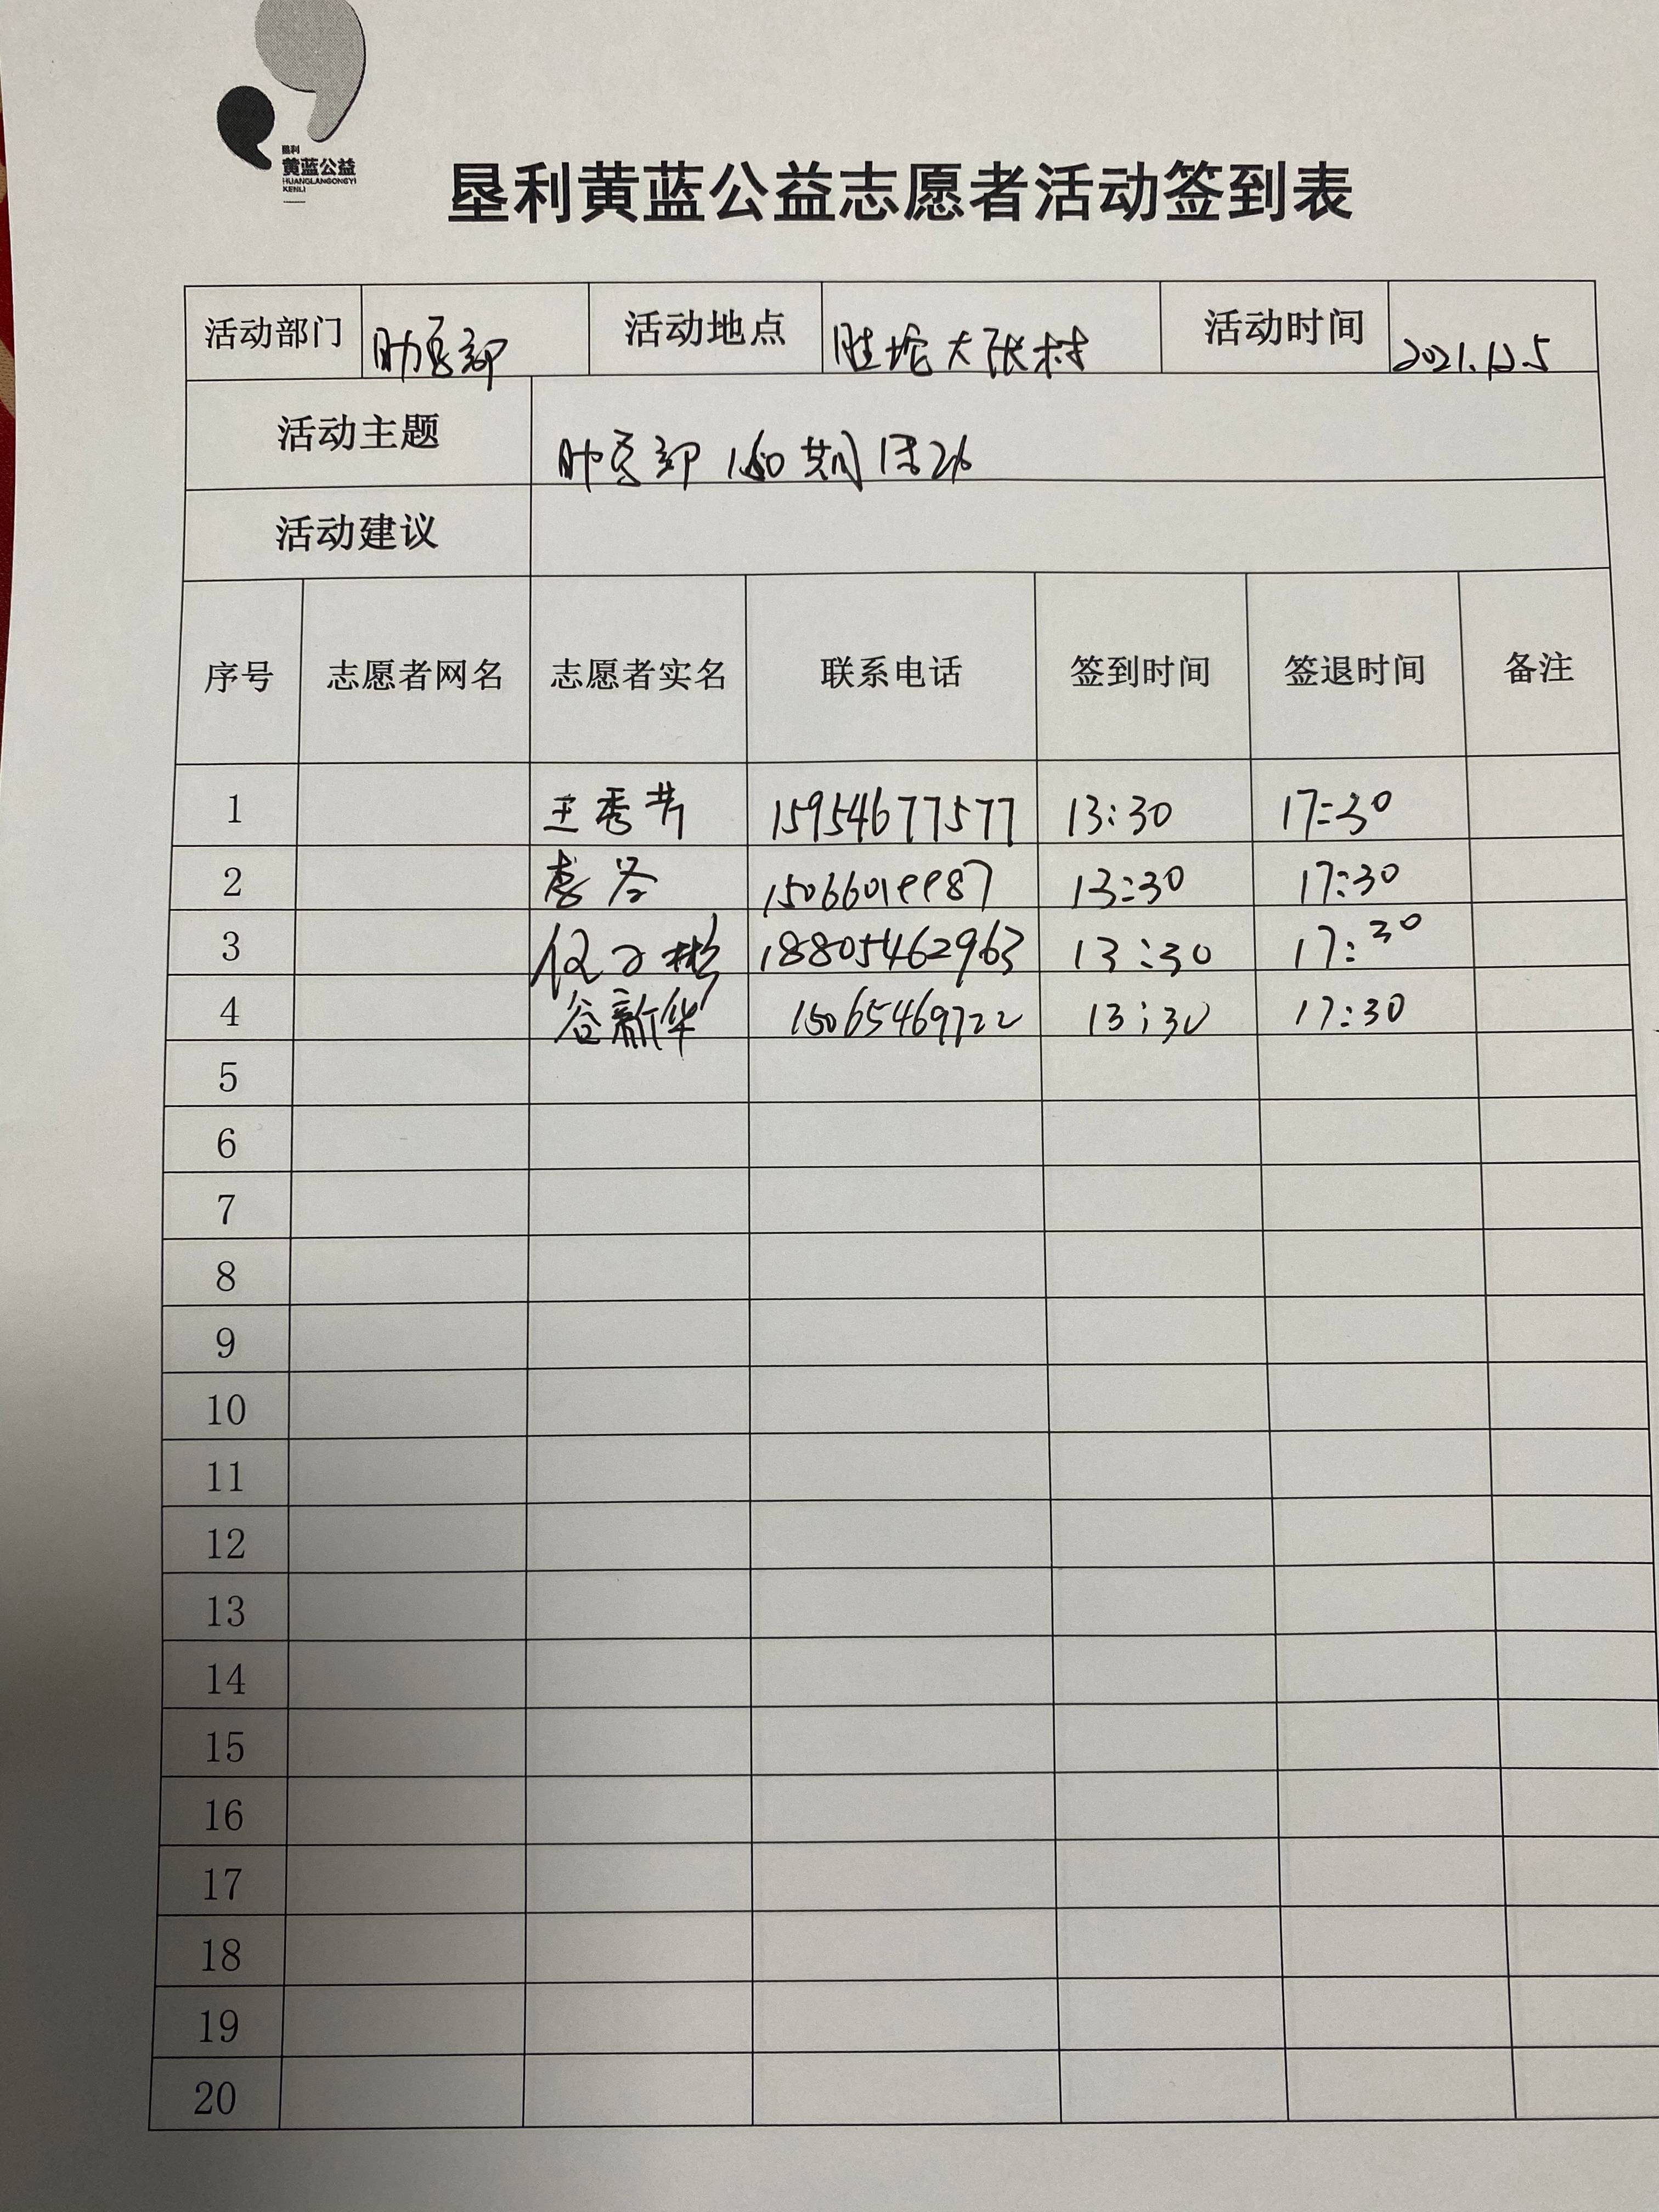 垦利
黄蓝公益
HUANGLANGONGYI
KENLI
垦利黄蓝公益志愿者活动签到表
活动部门 助医部 活动地点 胜坨大张村 活动时间 2021.12.5
活动主题 助医部 160期活动
活动建议
序号 志愿者网名 志愿者实名 联系电话 签到时间 签退时间 备注
1 王秀芳 15954677577 13:30 17:30
2 李 13:30 17:30
3 18805462963 13:30 17:30
4 谷新华 15065469722 13:30 17:30
5
6
7
8
9
10
11
12
13
14
15
16
17
18
19
20